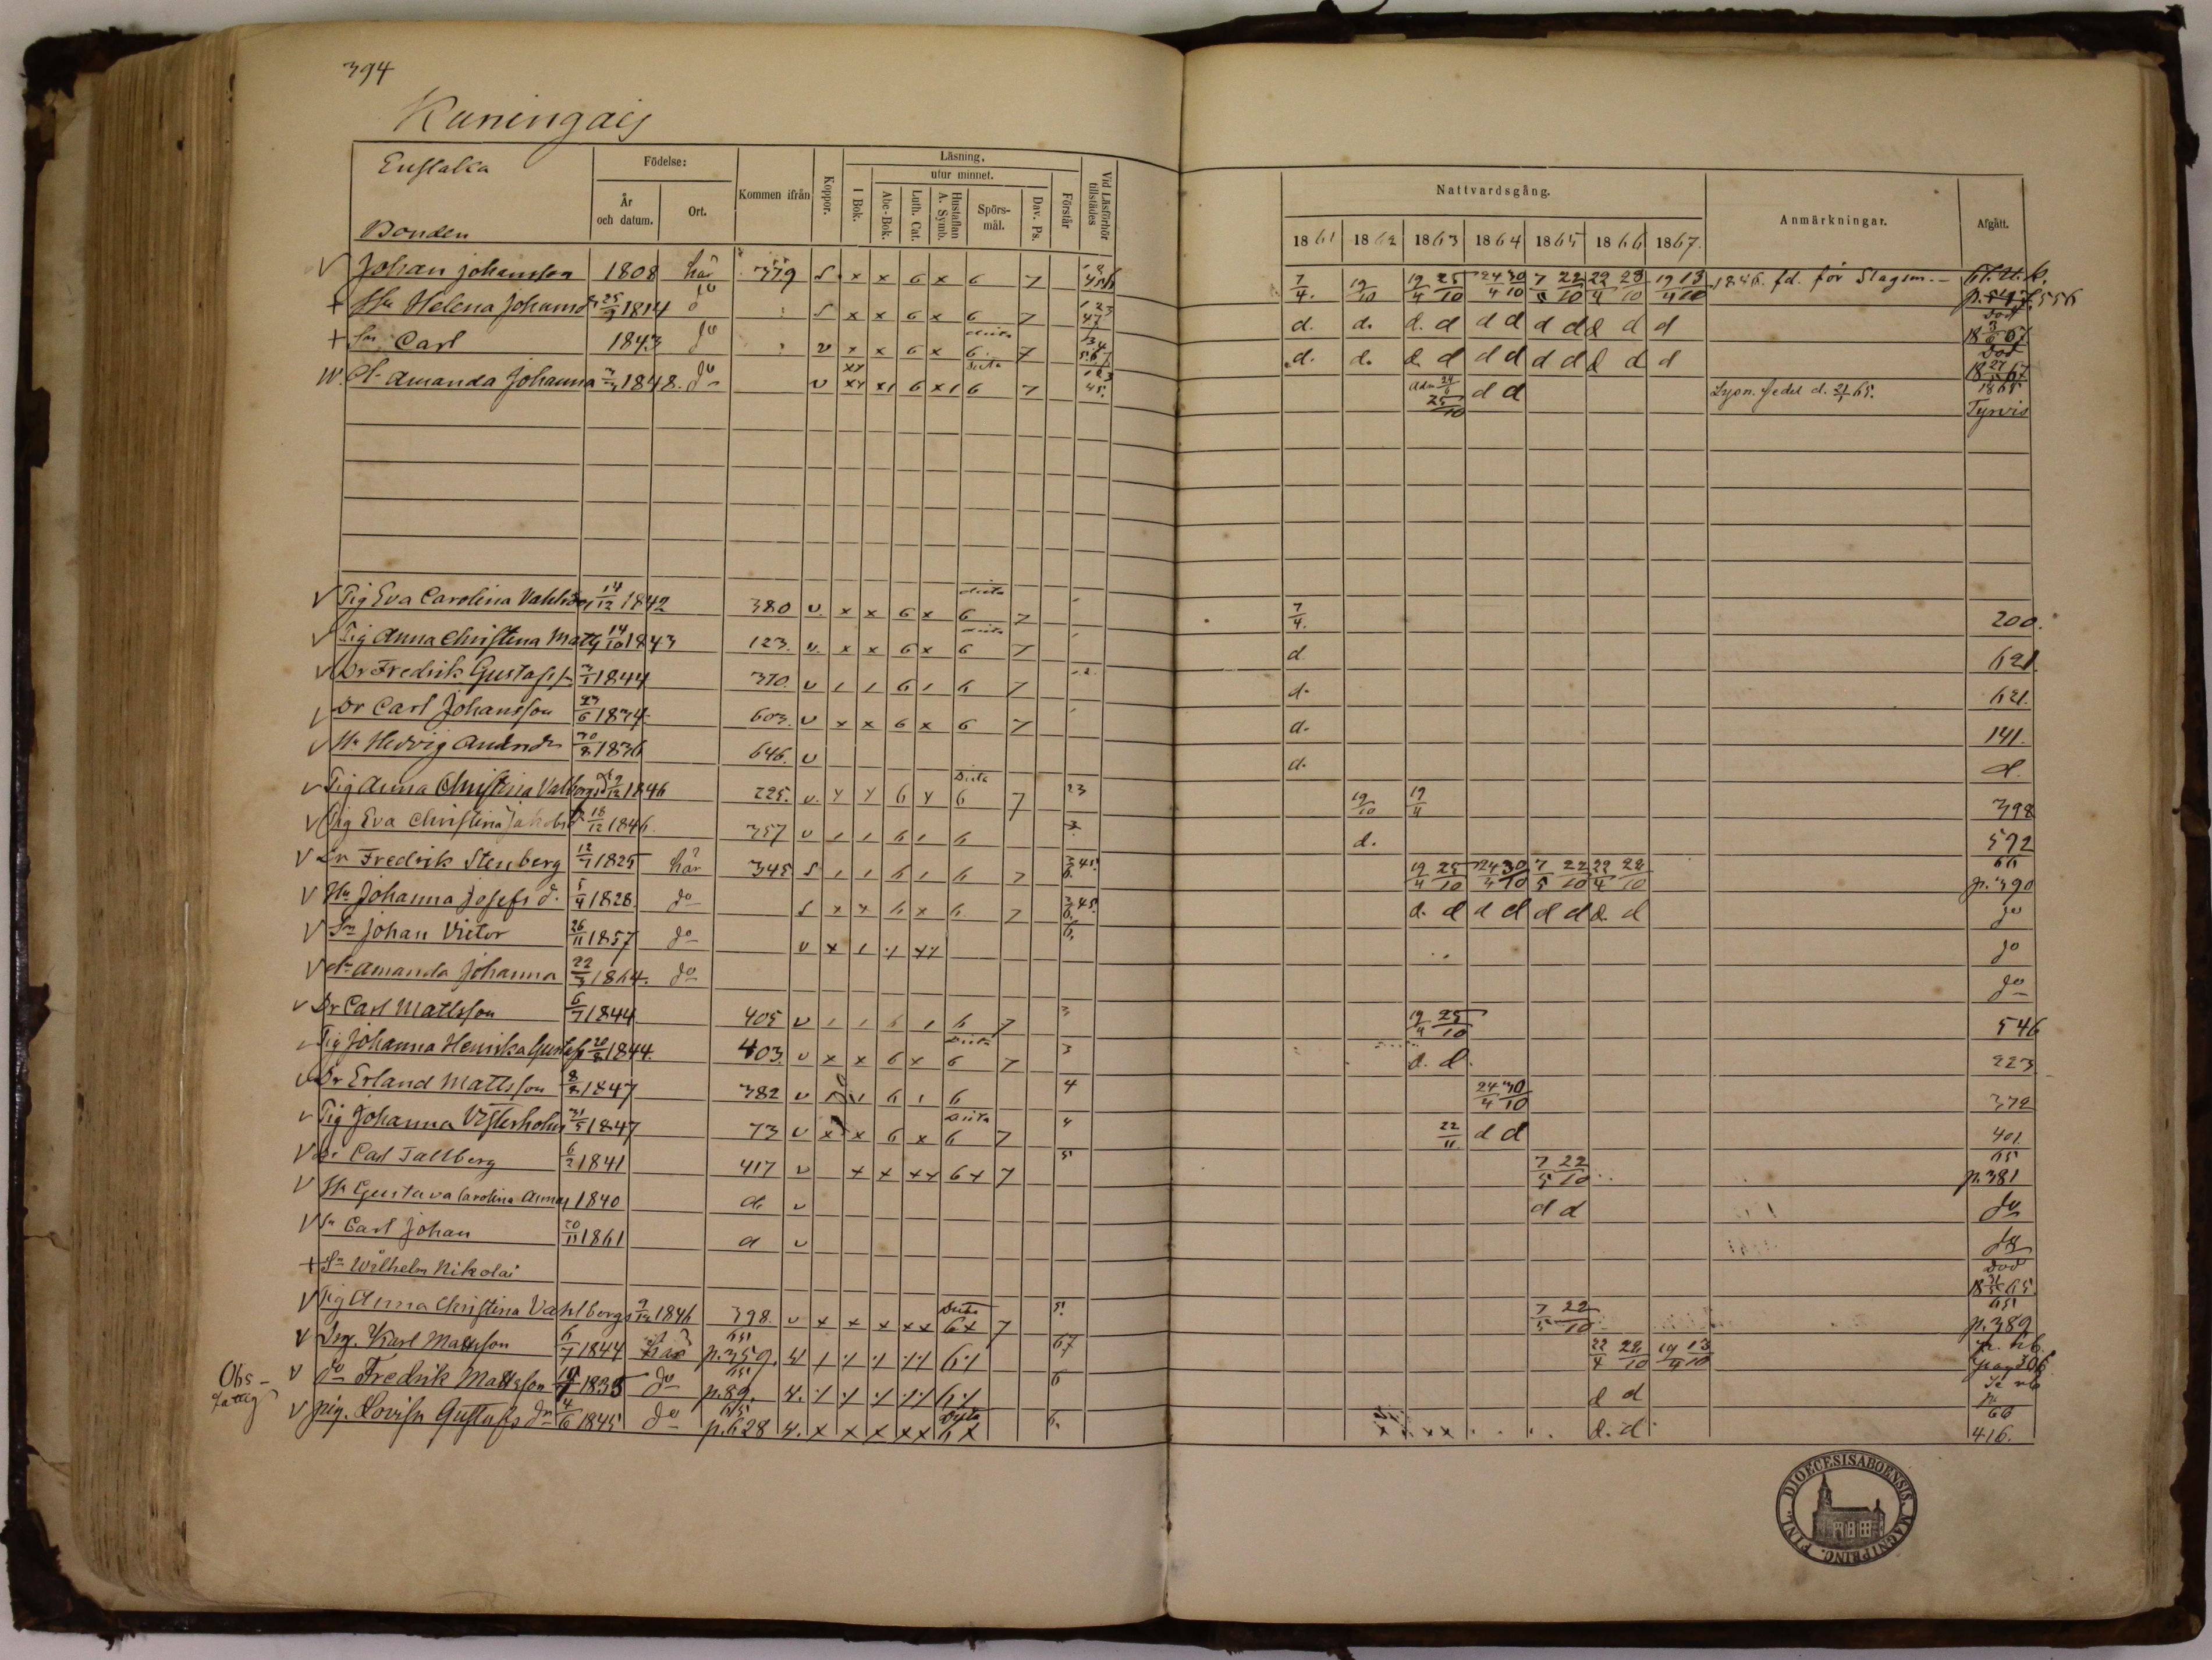 394
Kuningais
Enstaka
Bonden
Födelse:
År och datum.
Ort.
Kommen ifrån
Koppor.
Läsning.
I Bok.
utur minnet.
Abc-Bok.
Luth. Cat.
Hustaflan A. Symb.
Spörsmål.
Dav. Ps.
Förstår
Vid Läsförhör tillstädes
Nattvardsgång.
1861 1862 1863 1864 1865 1866 1867.
Anmärkningar.
Afgått.
V Johan Johansson 1808 här 379 s x x 6 x 6 7 7/4. 19/10 19/4 25/10 24/4 30/10 7/5 22/10 22/4 28/10 19/4 13/10 1846. fd. för Slagsm.- 556
+ Hu Helena Johansd 25/3 1814 do s x x 6 x 6 7 d. d. d. d d d d d d d d död 18 3/6 67
+ Sn Carl 1843 do v x x 6 x 6 7 d. d. d. d d d d d d d d död 18 27/5 67
Dr Amanda Johanna 1848. do v xx x1 6 x1 6 7 Adm 24/6 25/10 d d 1865 Tyrvis
V Pig Eva Carolina 14/12 1842 380 v. x x 6 x 6 7 7/4. 200.
V Pig Anna Christina Matts 14/10 1843 123. v. x x 6 x 6 7 d 621.
V Dr Fredrik Gustafss 3/1 1844 370. v 1 1 6 1 6 7 d. 621.
V Dr Carl Johansson 23/6 1834 603. v x x 6 x 6 7 d. 141.
V Hu Hedvig 1836 646. v d. d.
V Pig Anna Christina Valbergs 9/12 1846 225. v. x x 6 x 6 7 23 19/10 19/4 398
V Pig Eva Christina Jakobsd 18/12 1846. 357 v 1 1 6 1 6 3 d. 592
V Dr Fredrik Stenberg 12/7 1825 här 345 s 1 1 6 1 6 7 3 45. 6. 19/4 25/10 24/4 30/10 7/5 22/10 22/4 28/10 66 p. 390
V Hu Johanna Josefs d. 5/4 1828 do s x x 6 x 6 7 3 45. 6. d. d d d d d d. d do
V Sn Johan Victor 26/11 1857 do v x 1 6. do
V dr Amanda Johanna 22/3 1864. do do
V Dr Carl Mattsson 6/7 1844 405 v 1 1 6 1 6 7 3 19/4 25/10 546
Pig Johanna Henrika Gustafs 1844 403. v x x 6 x 6 7 3 d. d. 223
V Dr Erland Mattsson 8/2 1847 382 v 1 1 6 1 6 4 24/4 30/10 372
V Pig Johanna Vesterholm 31/5 1847 73 v x x 6 x 6 7 4 22/11 d d 401.
V Dr Carl Tallberg 6/2 1841 417 v x x xx 6x 7 5 7/5 22/10 65 p. 381
V Hu Gustava Carolina 1840 d. v d d do
V Sn Carl Johan 20/11 1861 d v do
+ Sn Wilhelm Nikolai död 18 31/5 65.
V Pig Anna Christina Vahlbergs 9/12 1846 398. v x x x xx 6x 7 5. 7/5 22/10 65 p. 389
V Drg. Karl Mattsson 6/7 1844 här p. 359. 67 22/4 28/10 19/4 13/10
Obs- V do Fredrik Mattsson 1835 do p. 89. 6 d d
V pig. Lovisa Gustafs dr 4/6 1845 do p. 628 x x x xx 6x 6. d. d 66 416.
DIOECESIS ABOENSIS MAGNI PRINC. FINL.